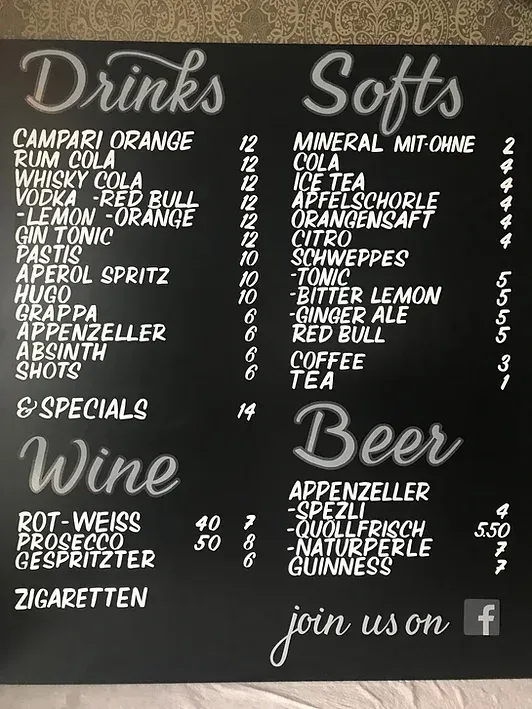 Drinks
CAMPARI ORANGE 12
RUM COLA 12
WHISKY COLA 12
VODKA -RED BULL 12
-LEMON -ORANGE 12
GIN TONIC 12
PASTIS 10
APEROL SPRITZ 10
HUGO 10
GRAPPA 6
APPENZELLER 6
ABSINTH 6
SHOTS 6
& SPECIALS 14
Wine
ROT-WEISS 40 7
PROSECCO 50 8
GESPRITZTER 6
ZIGARETTEN
Softs
MINERAL MIT-OHNE 2
COLA 4
ICE TEA 4
APFELSCHORLE 4
ORANGENSAFT 4
CITRO 4
SCHWEPPES
-TONIC 5
-BITTER LEMON 5
-GINGER ALE 5
RED BULL 5
COFFEE 3
TEA 1
Beer
APPENZELLER
-SPEZLI 4
-QUÖLLFRISCH 5.50
-NATURPERLE 7
GUINNESS 7
join us on f